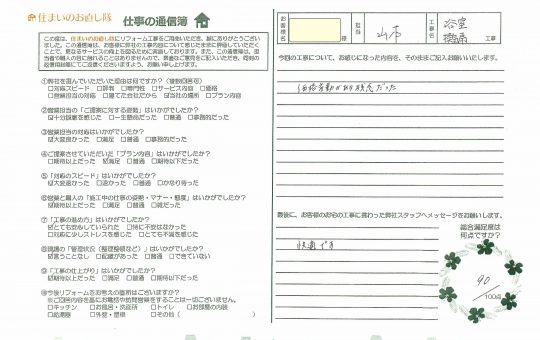 住まいのお直し隊 仕事の通信簿
この度は、住まいのお直し隊にリフォーム工事をご用命いただき、誠にありがとうござい
ました。この通信簿は、お客様に弊社の工事内容について感じたままに評価していただく
ことで、更なるサービスの向上を図るために実施しております。
①弊社を選んでいただいた理由は何ですか?(複数回答可)
□対応スピード □評判 □専門性 □サービス内容 □価格
□営業担当の対応 □建てた会社だから ☑会社の場所 □プラン内容
②営業担当の「ご提案に対する姿勢」はいかがでしたか?
☑十分誠意を感じた □一生懸命だった □普通 □事務的だった
③営業担当の対応はいかがでしたか?
☑大変良かった □満足 □普通 □事務的だった
④ご提案させていただいた「プラン内容」はいかがでしたか?
□期待以上だった ☑満足 □普通 □期待以下だった
⑤「対応のスピード」はいかがでしたか?
☑大変速かった □速かった □普通 □かなり待った
⑥営業と職人の「施工中の仕事の姿勢・マナー・態度」はいかがでしたか?
□満足 □普通
⑦「工事の進め方」はいかがでしたか?
☑とても安心していられた □特に不安はなかった
□対応に少しストレスを感じた □とても不満を感じた
⑧現場の「管理状況(整理整頓など)」はいかがでしたか?
☑言うことなし □配慮があった □普通 □できていない
⑨「工事の仕上がり」はいかがでしたか?
☑期待以上だった □満足 □普通 □期待以下だった
⑩今後リフォームをお考えの箇所はございますか?
※ご回答内容を基にお電話や訪問営業をすることは一切ございません。
□キッチン □お風呂・洗面所 □トイレ □お部屋の内装
□給湯器 □外壁・屋根 □その他( )
お客様名 担当 工事名 浴室
工事
今回の工事について、お感じになった内容を、そのままご記入お願いします。
価格変動があり残念だった
最後に、お客様のお宅の工事に携わった弊社スタッフへメッセージをお願いします。
快適です
総合満足度は
何点ですか?
90
/100点